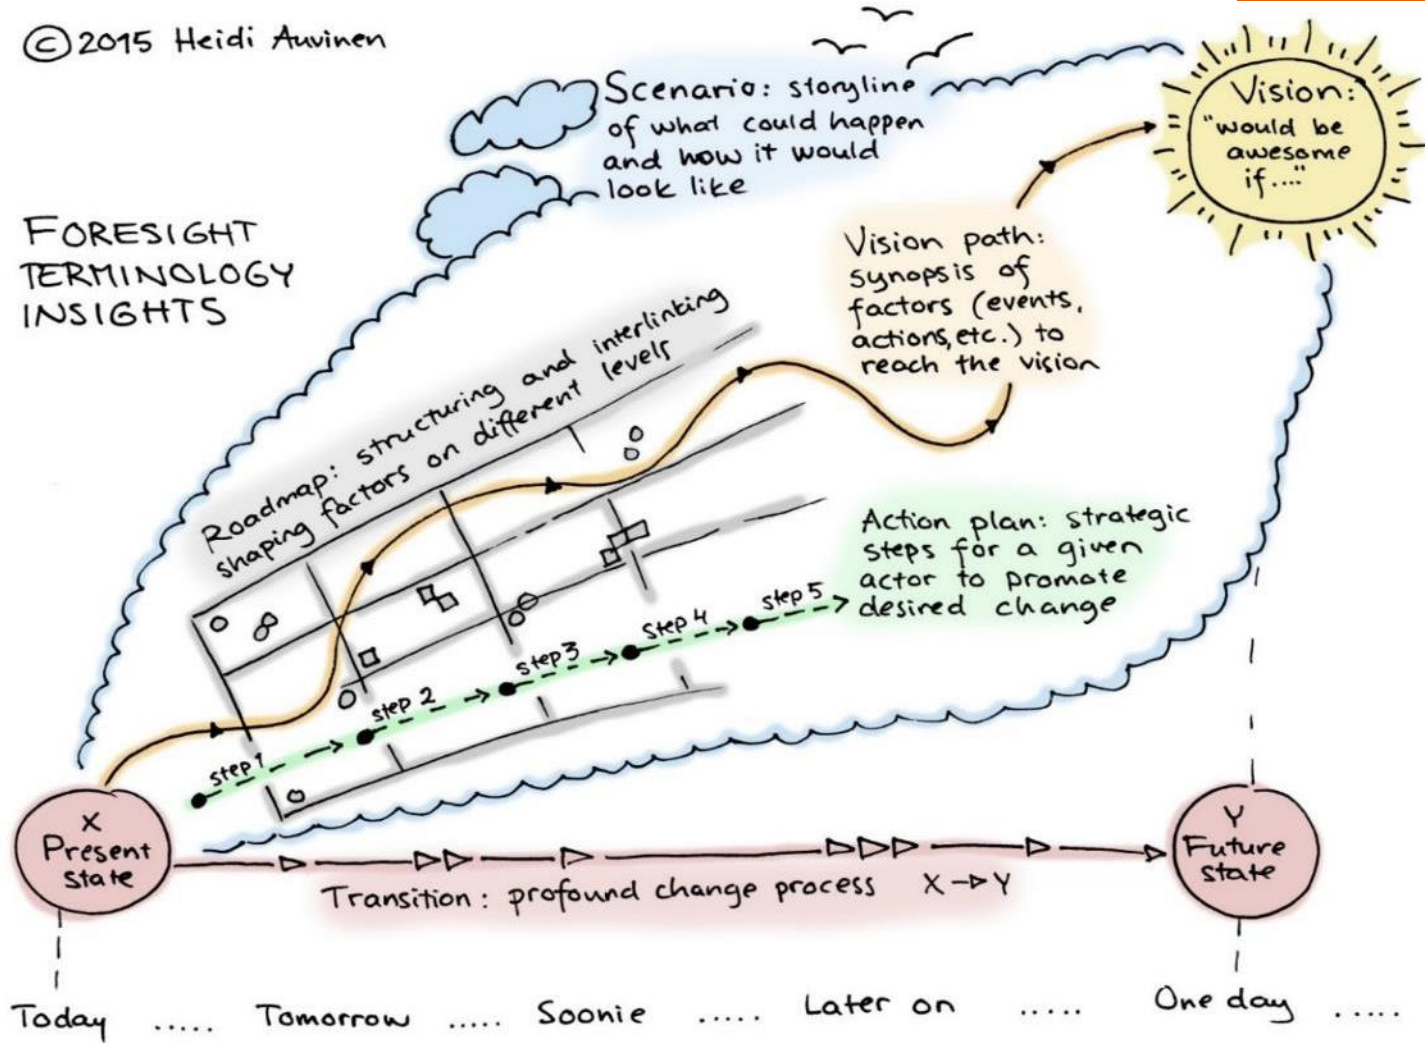 © 2015 Heidi Auvinen
FORESIGHT
TERMINOLOGY
INSIGHTS
Scenario: storyline
of what could happen
and how it would
look like
Vision:
"would be
awesome
if...."
Vision path:
synopsis of
factors (events,
actions, etc.) to
reach the vision
Roadmap: structuring and interlinking
shaping factors on different levels
Action plan: strategic
steps for a given
actor to promote
desired change
step 1
step 2
step 3
step 4
step 5
X
Present
state
Y
Future
state
Transition: profound change process X→Y
Today ..... Tomorrow ..... Soonie ..... Later on ..... One day .....